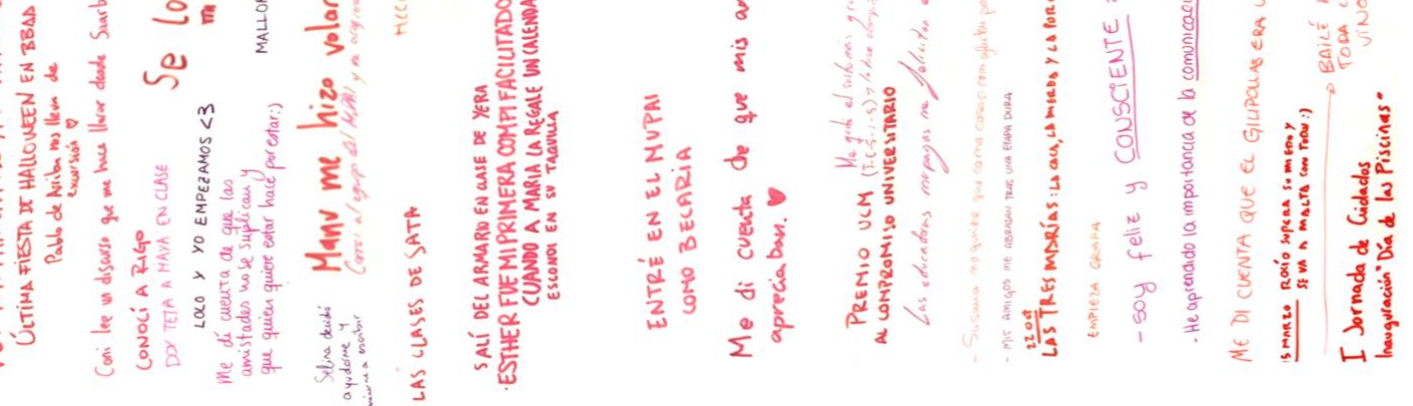 ÚLTIMA FIESTA DE HALLOWEEN EN BBAA
Pablo de Arriba nos lleva de
excursión ♡
Coni lee un discurso que me hace llorar desde
CONOCÍ A RIGO
DOY TETA A MAYA EN CLASE
Se lo
LOLO Y YO EMPEZAMOS <3
Me di cuenta de que las
amistades no se suplican y
que quien quiere estar hace por estar:)
MALLOR
Selina decidió
ayudarme y
a escribir
Manu me hizo volar
Conocí al grupo del
LAS CLASES DE SATA
SALÍ DEL ARMARIO EN CLASE DE YERA
·ESTHER FUE MI PRIMERA COMPI FACILITADO
CUANDO A MARIA LA REGALE UN CALENDA
ESCONDI EN SU TAQUILLA
ENTRÉ EN EL MUPAI
COMO BECARIA
Me di cuenta de que mis am
aprecia ban. ♥
PREMIO UCM
AL COMPROMISO UNIVERSITARIO
Las educadoras me pagas me felicitan
- Susana no quiere que coma cosas con
- MIS AMIGOS ME ABRAZAN TRAS UNA ETAPA DURA
22.09
LAS TRES MARÍAS: LA CACA, LA MIERDA Y LA POR
EMPIEZA GRAPA
- SOY feliz y CONSCIENTE
· He aprendido la importancia de la comunicaci
ME DI CUENTA QUE EL GILIPOLLAS ERA
15 MARZO ROCÍO SUPERA SU MIEDO Y
SE VA A MALTA CON TODO :)
BAILÉ
TODA
VINO
I Jornada de Cuidados
Inauguración "Día de las Piscinas"